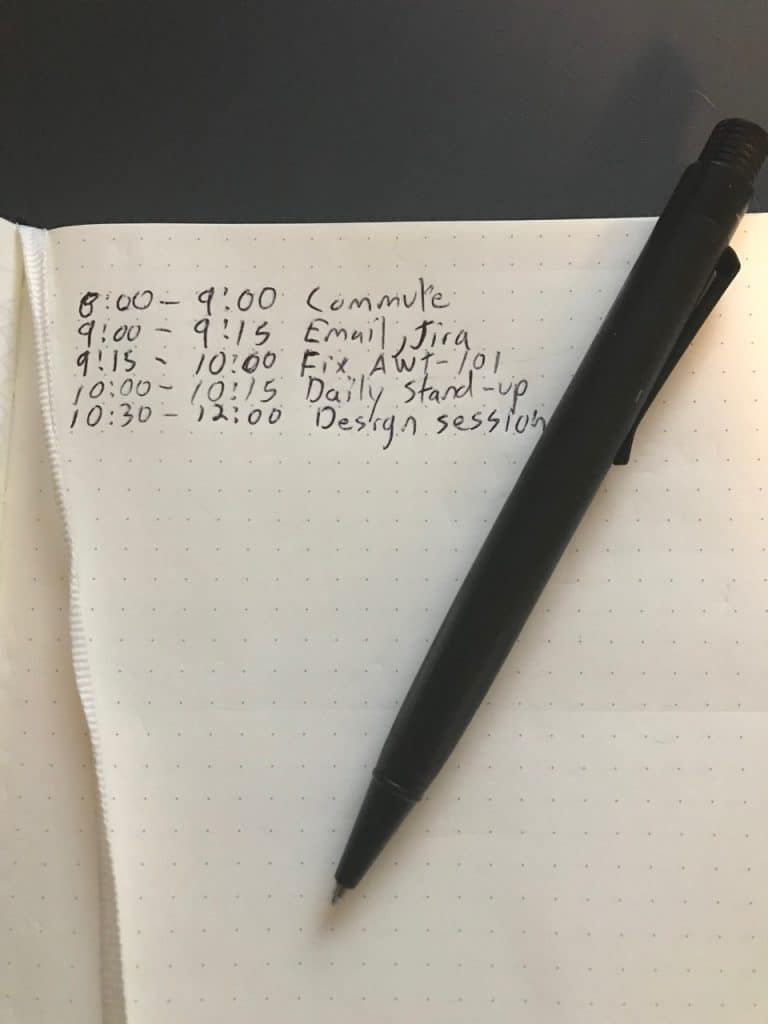 8:00 - 9:00 Commute
9:00 - 9:15 Email, Jira
9:15 - 10:00 Fix AWT-101
10:00 - 10:15 Daily stand-up
10:30 - 12:00 Design session